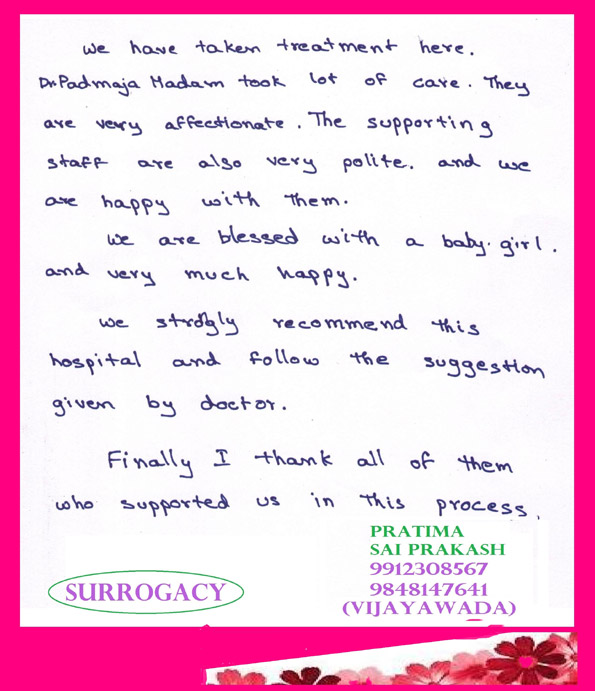 We have taken treatment here.
Dr. Padmaja Madam took lot of care. They
are very affectionate. The supporting
staff are also very polite. and we
are happy with them.
We are blessed with a baby. girl.
and very much happy.
We strogly recommend this
hospital and follow the suggestion
given by doctor.
Finally I thank all of them
who supported us in this process.
PRATIMA
SAI PRAKASH
9912308567
SURROGACY
9848147641
(VIJAYAWADA)